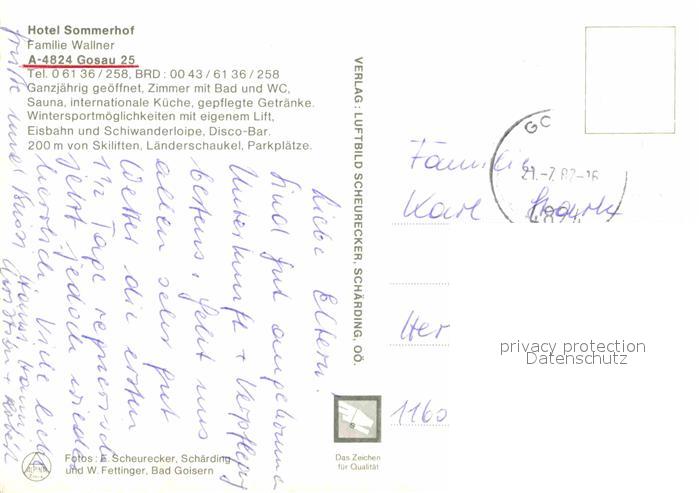 Hotel Sommerhof
Familie Wallner
A-4824 Gosau 25
Tel. 0 61 36 / 258, BRD: 00 43 / 61 36 / 258
Ganzjährig geöffnet, Zimmer mit Bad und WC,
Sauna, internationale Küche, gepflegte Getränke.
Wintersportmöglichkeiten mit eigenem Lift,
Eisbahn und Schiwanderloipe, Disco-Bar.
200 m von Skiliften, Länderschaukel, Parkplätze.
Liebe Eltern!
Sind gut angekommen
Unterkunft + Verpflegung
bestens, geht uns
allen sehr gut
Wetter die ersten
1 1/2 Tage regnerisch
jetzt jedoch wieder
herrlich Viele liebe
Grüße und Küsse
VERLAG: LUFTBILD SCHEURECKER, SCHÄRDING, OÖ.
GO
21.-7.82-16
4824
Familie
Karl
1160
privacy protection
Datenschutz
Das Zeichen
für Qualität
Fotos: E. Scheurecker, Schärding
und W. Fettinger, Bad Goisern